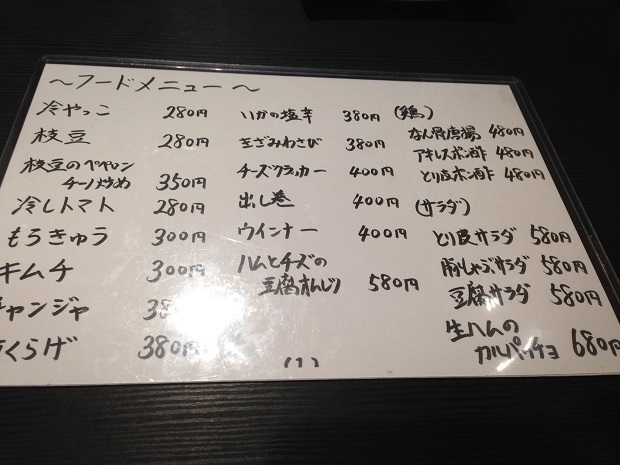 ～フードメニュー～
冷やっこ 280円
枝豆 280円
枝豆のペペロン
チーノ炒め 350円
冷しトマト 280円
もろきゅう 300円
キムチ 300円
チャンジャ
くらげ 380円
いかの塩辛 380円
わさび 380円
チーズクラッカー 400円
出し巻 400円
ウインナー 400円
ハムとチーズの
豆腐 580円
(1)
(鶏)
なん骨唐揚 480円
アキレスポン酢 480円
とり皮ポン酢 480円
(サラダ)
とり皮サラダ 580円
豚しゃぶサラダ 580円
豆腐サラダ 580円
生ハムの
カルパッチョ 680円